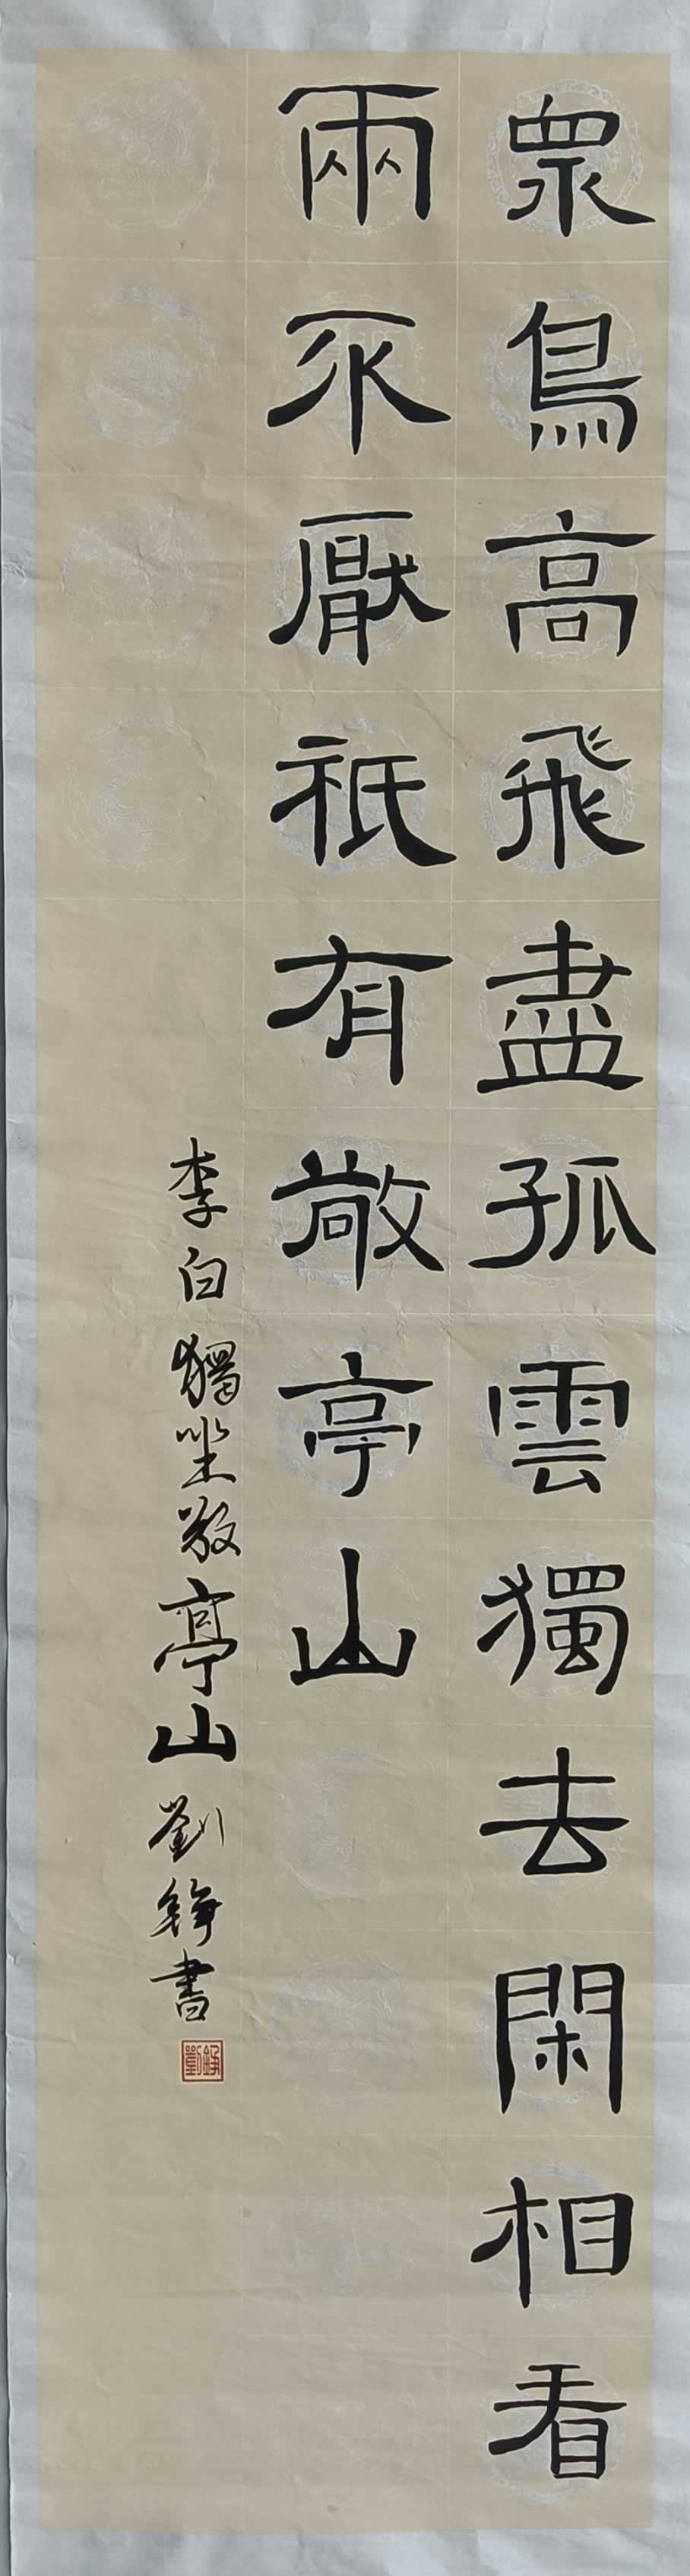 眾鳥高飛盡孤雲獨去閑相看
兩不厭祇有敬亭山
李白獨坐敬亭山劉錚書
劉錚